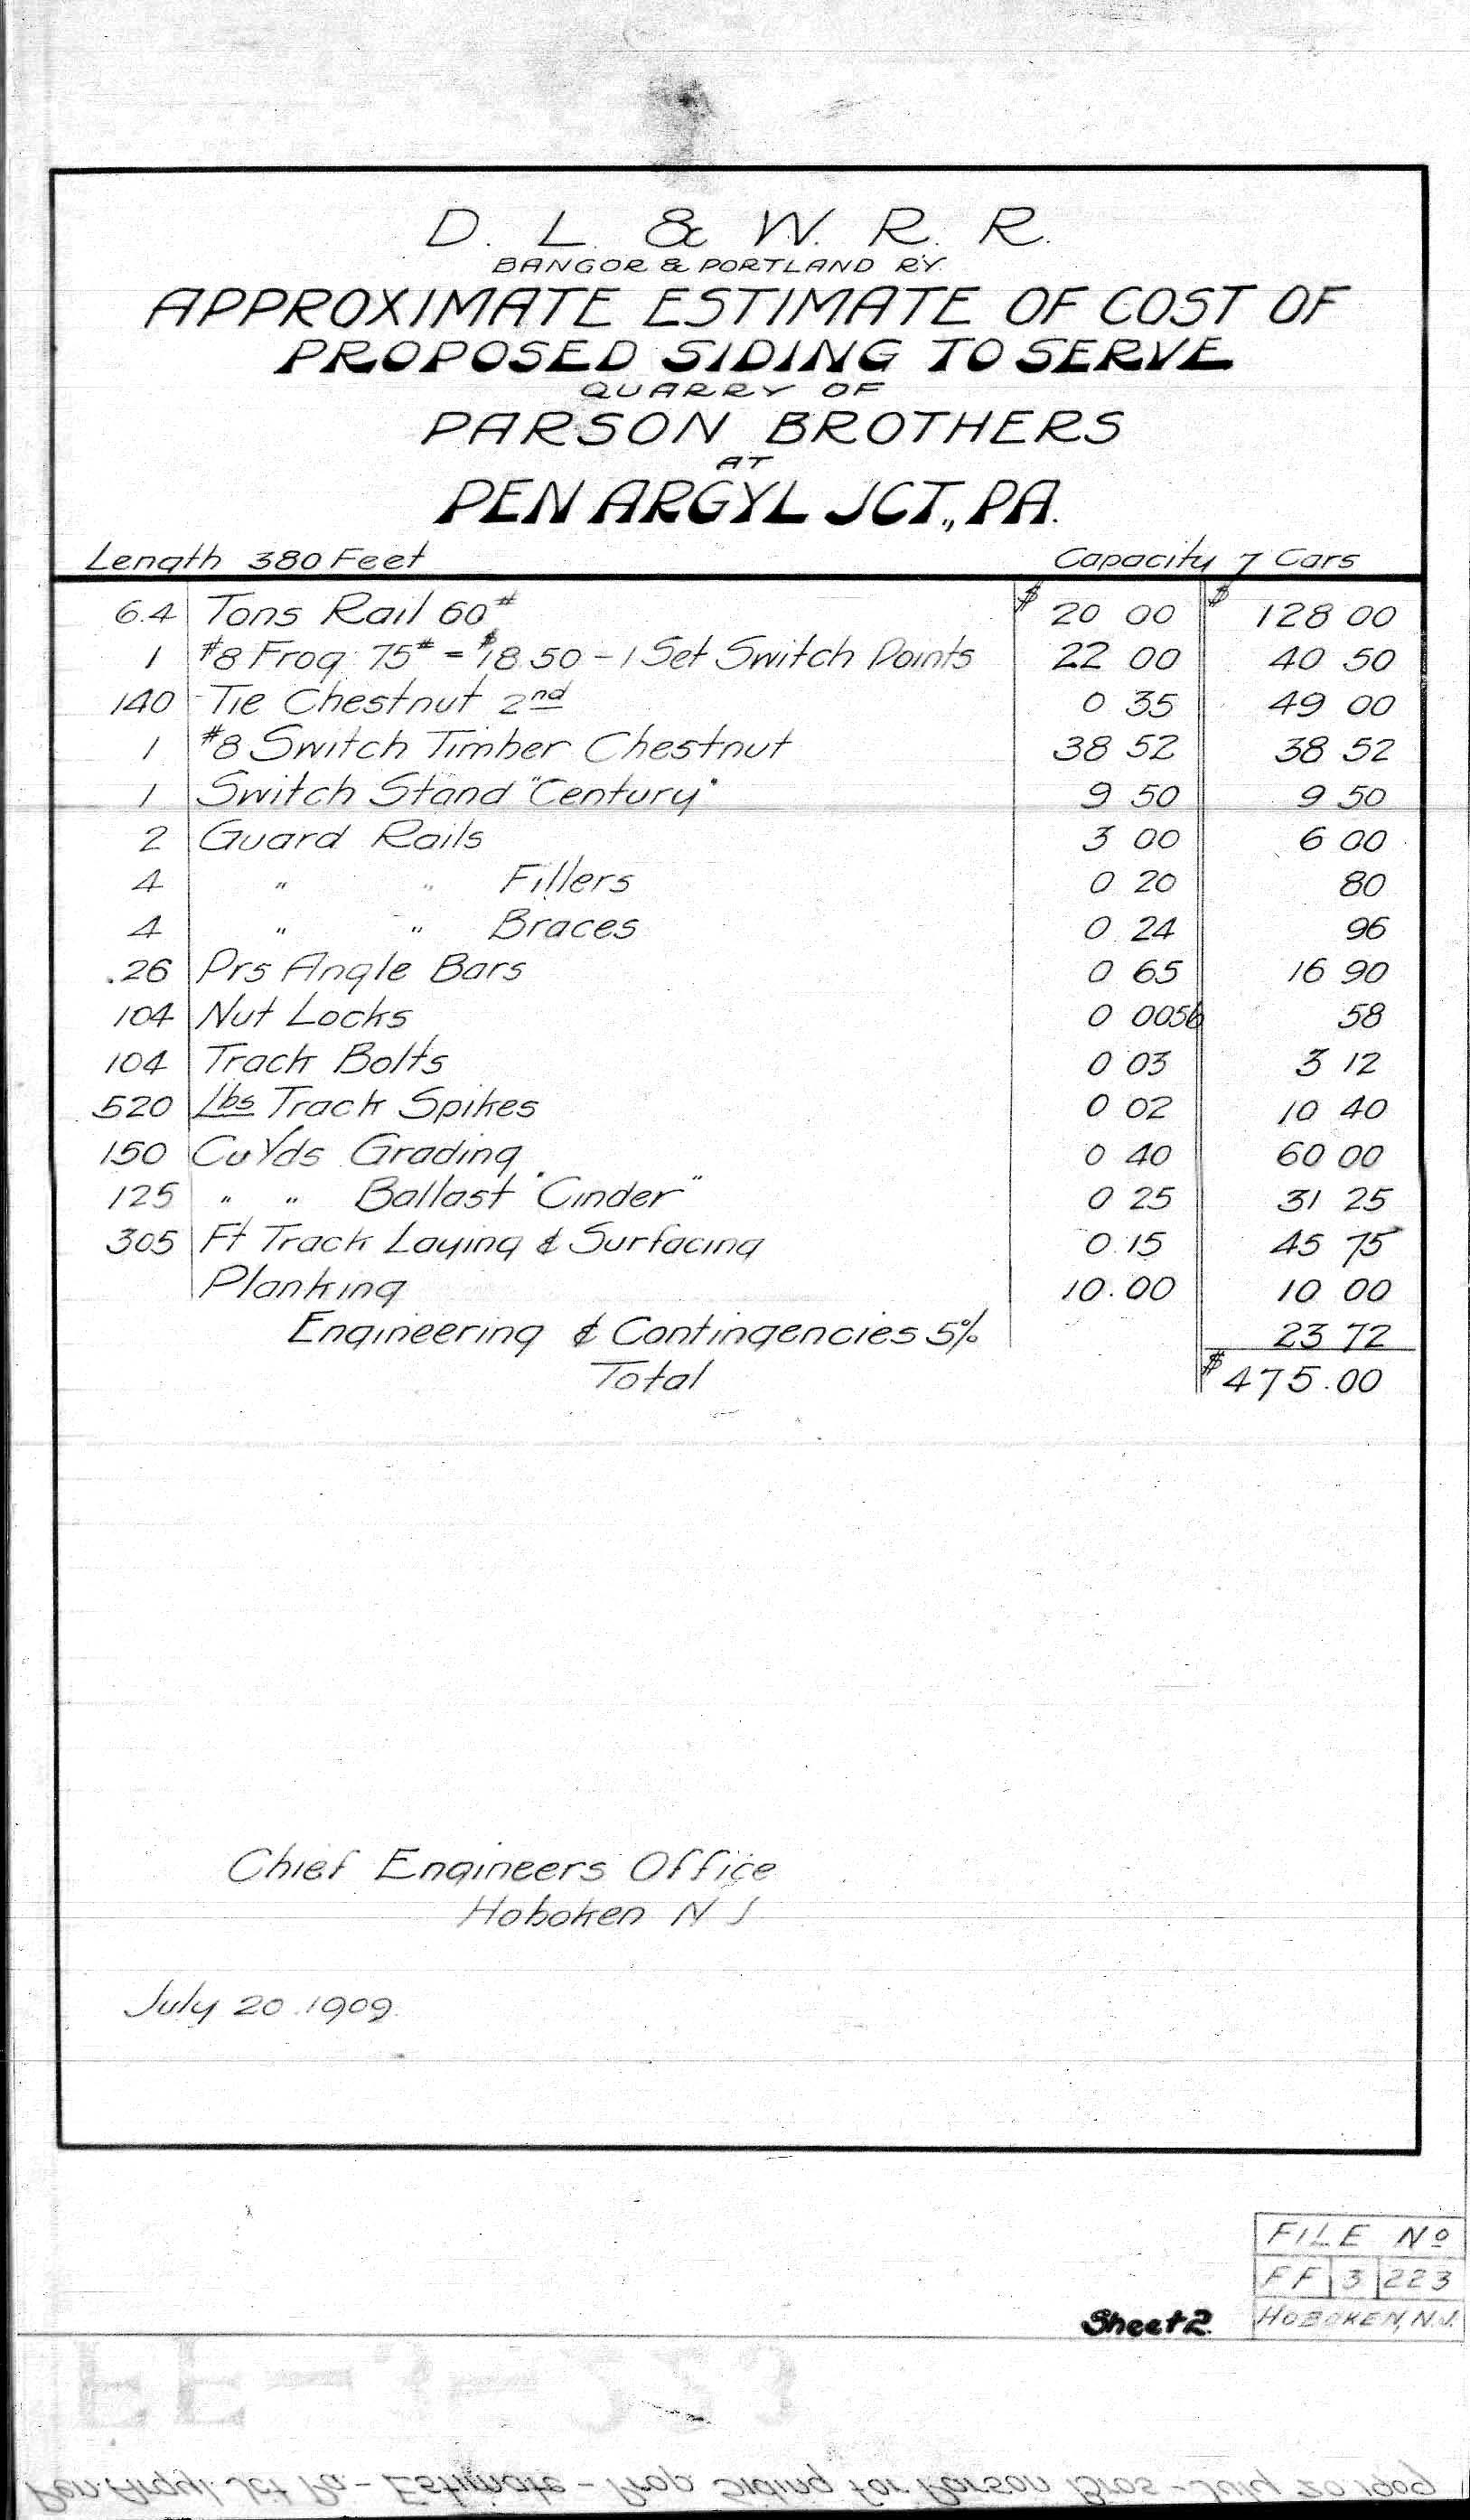 D. L. & W. R. R.
BANGOR & PORTLAND RY.
APPROXIMATE ESTIMATE OF COST OF
PROPOSED SIDING TO SERVE
QUARRY OF
PARSON BROTHERS
AT
PEN ARGYL JCT., PA.
Length 380 Feet Capacity 7 Cars
6.4 Tons Rail 60# $ 20 00 $ 128 00
1 #8 Frog 75# = $18.50 - 1 Set Switch Points 22 00 40 50
140 Tie Chestnut 2nd 0 35 49 00
1 #8 Switch Timber Chestnut 38 52 38 52
1 Switch Stand "Century" 9 50 9 50
2 Guard Rails 3 00 6 00
4 " " Fillers 0 20 80
4 " " Braces 0 24 96
26 Prs Angle Bars 0 65 16 90
104 Nut Locks 0 0056 58
104 Track Bolts 0 03 3 12
520 Lbs Track Spikes 0 02 10 40
150 Cu Yds Grading 0 40 60 00
125 " " Ballast "Cinder" 0 25 31 25
305 Ft Track Laying & Surfacing 0.15 45 75
Planking 10.00 10 00
Engineering & Contingencies 5% 23 72
Total $475.00
Chief Engineers Office
Hoboken N J
July 20. 1909.
FILE No
FF 3 223
Sheet 2. HOBOKEN, N.J.
Pen Argyl Jct Pa. - Estimate - Prop. Siding for Parson Bros - July 20 1909